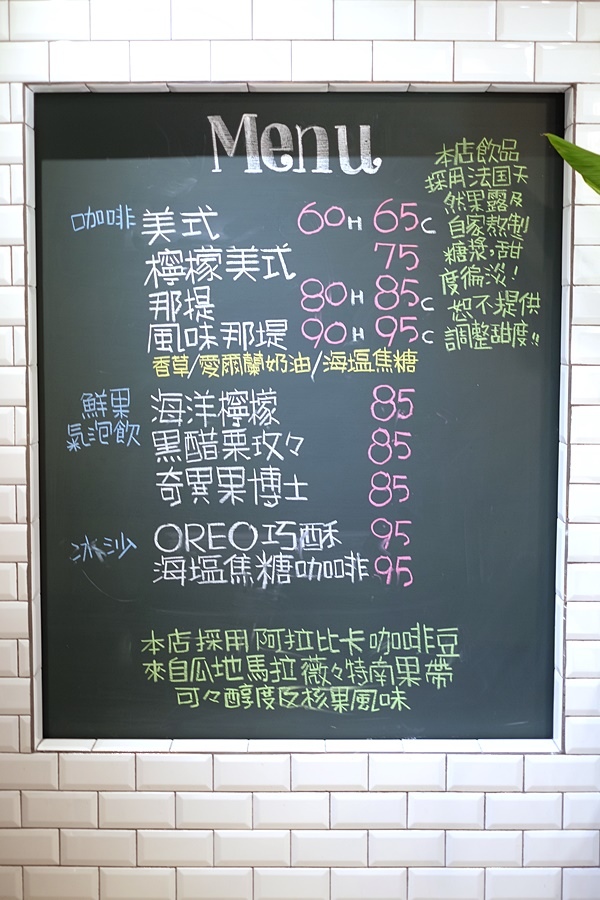 Menu
咖啡 美式 60H 65C
檸檬美式 75
那堤 80H 85C
風味那堤 90H 95C
香草/愛爾蘭奶油/海塩焦糖
鮮果
氣泡飲
海洋檸檬 85
黑醋栗玫々 85
奇異果博士 85
冰沙 OREO巧酥 95
海塩焦糖咖啡 95
本店飲品
採用法国天
然果露及
自家熬制
糖漿，甜
度偏淡！
恕不提供
調整甜度!!
本店採用阿拉比卡咖啡豆
來自瓜地馬拉薇々特南果帶
可々醇度及核果風味